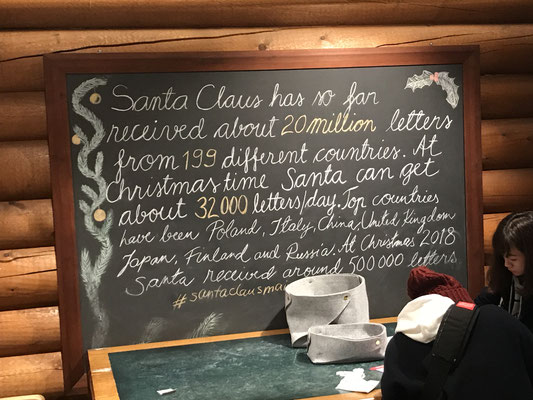 Santa Claus has so far
received about 20 million letters
from 199 different countries. At
Christmas time Santa can get
about 32 000 letters/day. Top countries
have been Poland, Italy, China, United Kingdom
Japan, Finland and Russia. At Christmas 2018
Santa received around 500 000 letters
#santaclausma